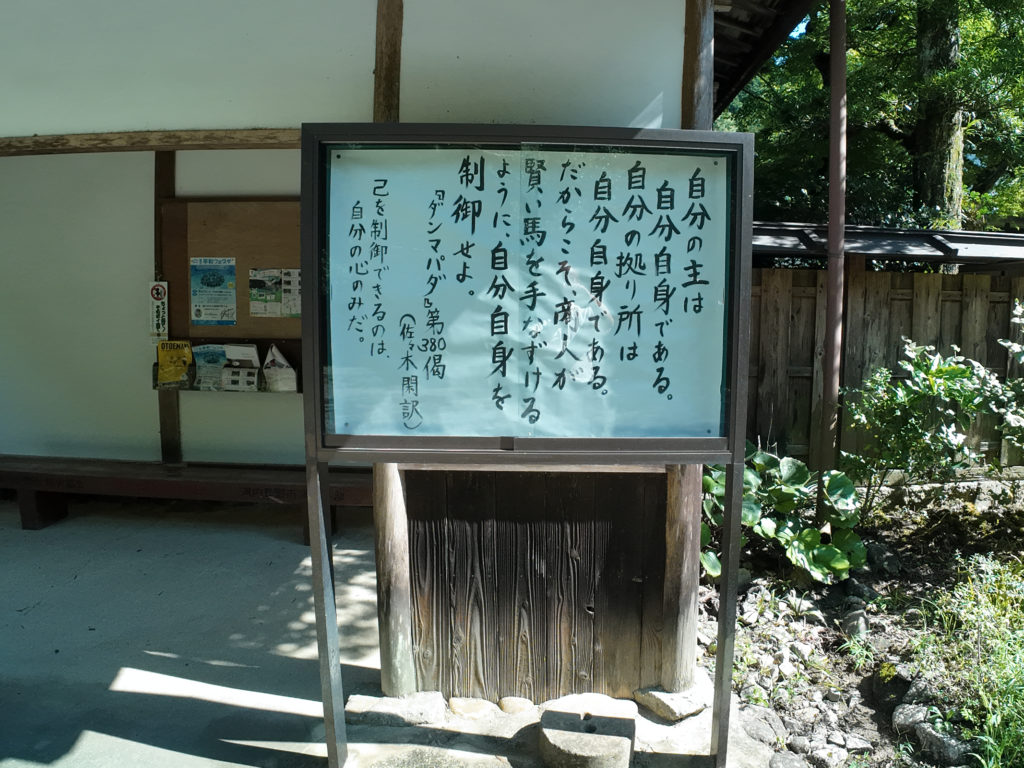 自分の主は
自分自身である。
自分の拠り所は
自分自身である。
だからこそ、商人が
賢い馬を手なずける
ように、自分自身を
制御せよ。
『ダンマパダ』第380偈
（佐々木閑訳）
己を制御できるのは、
自分の心のみだ。